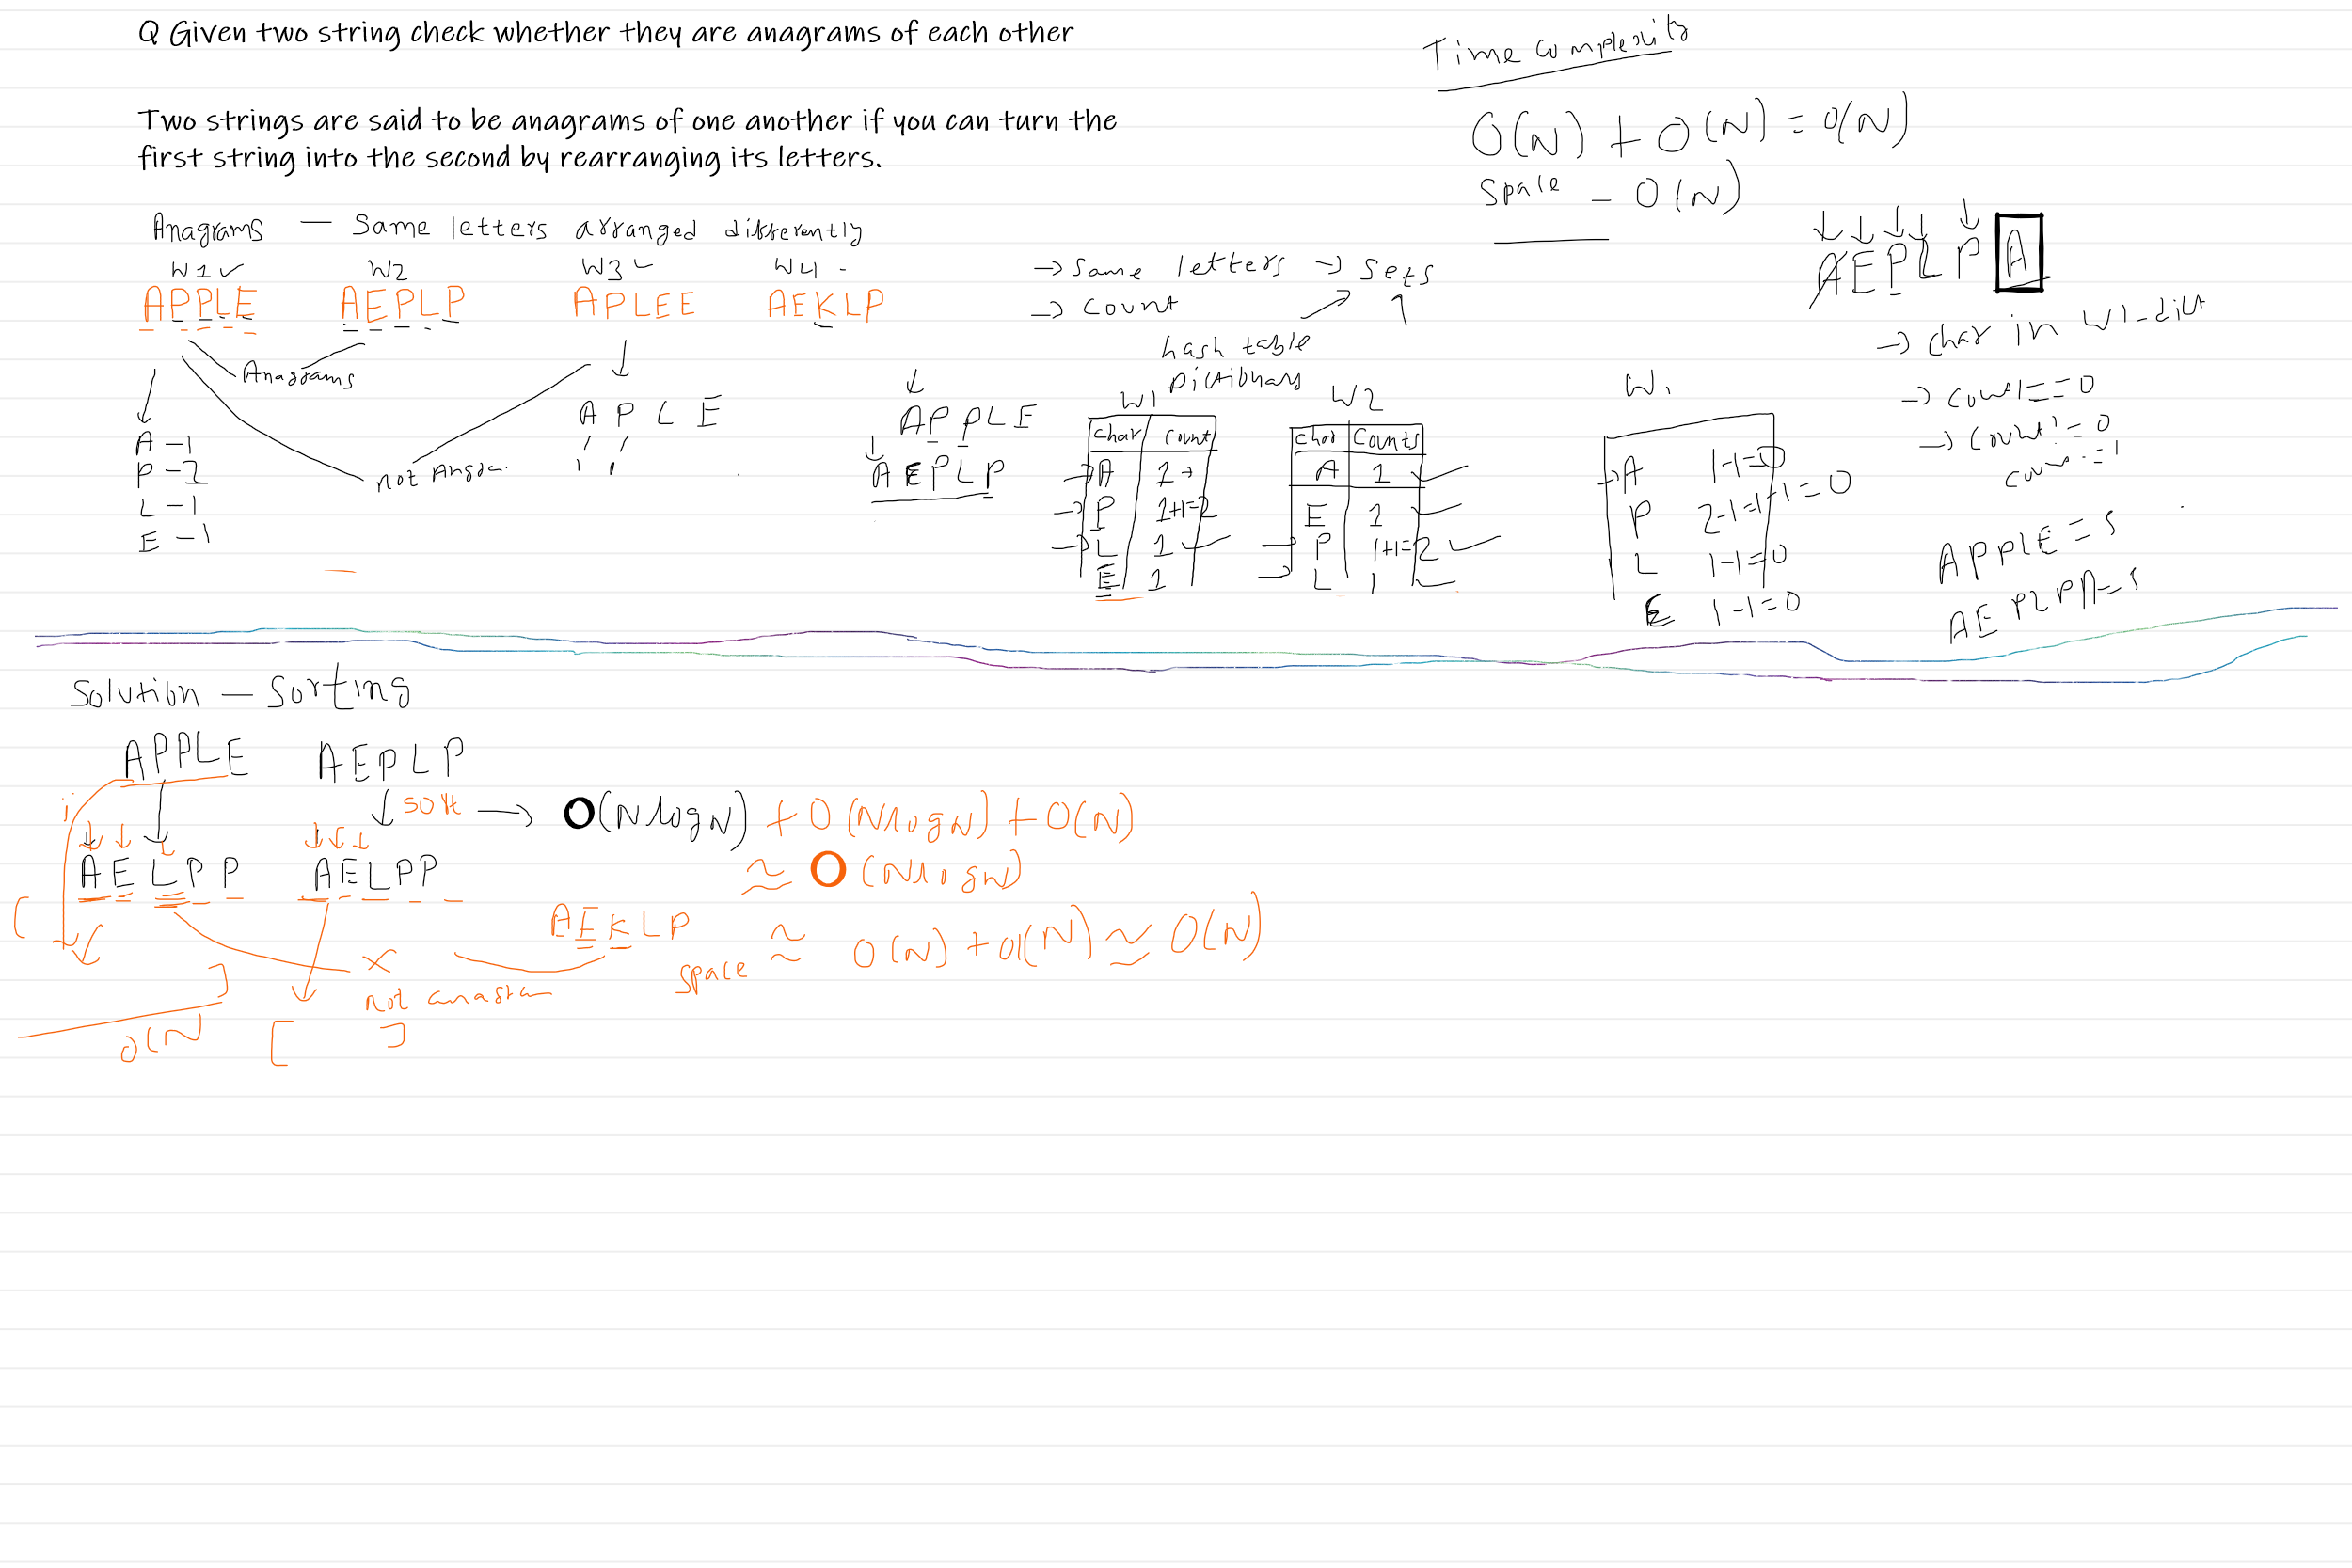 Q Given two string check whether they are anagrams of each other
Two strings are said to be anagrams of one another if you can turn the
first string into the second by rearranging its letters.
Anagrams — Same letters arranged differently
W1 W2 W3 W4
APPLE AEPLP APLEE AEKLP
Anagrams
A - 1
P - 2
L - 1
E - 1
not Anagra.
A P L E
→ Same letters → Sets
→ Count
hash table
Dictionary
APPLE
AEPLP
W1
Char Count
A 1
P 1+1=2
L 1
E 1
W2
Char Counts
A 1
E 1
P 1+1=2
L 1
Time complexity
O(N) + O(N) = O(N)
Space - O(N)
AEPLP A
→ Char in W1-dict
→ Count == 0
→ Count != 0
W1
A 1-1=0
P 2-1=1-1=0
L 1-1=0
E 1-1=0
APPLE = 5
Solution — Sorting
APPLE AEPLP
sort → O(NlogN) + O(NlogN) + O(N)
≈ O(NlogN)
AELPP AELPP
AEKLP
X
not anagram
space ≈ O(N) + O(N) ≈ O(N)
[ ]
O(N)
[ ]